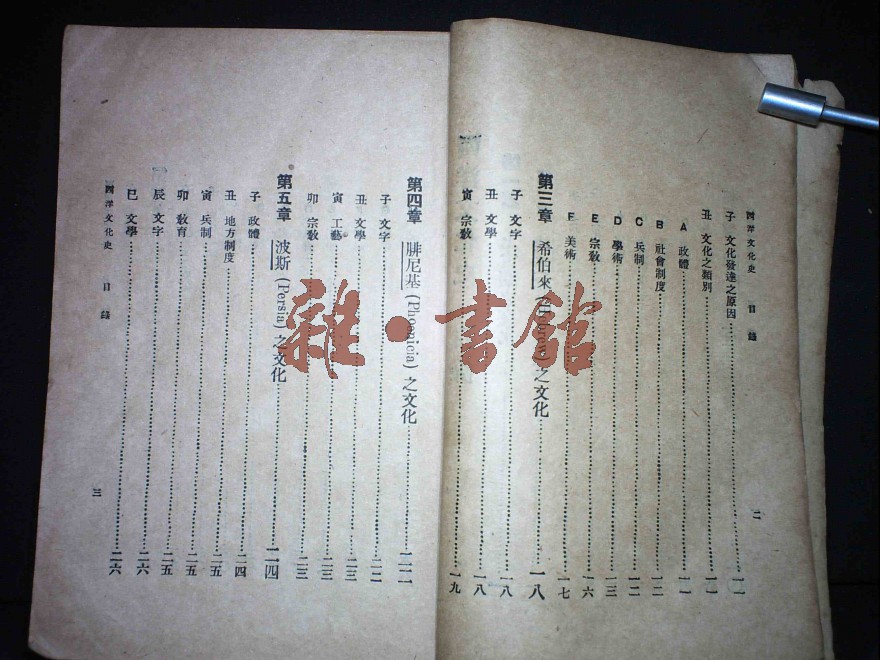 西洋文化史 目錄
二
子 文化發達之原因 一一
丑 文化之類別 一一
A 政體 一一
B 社會制度 一二
C 兵制 一二
D 學術 一三
E 宗教 一六
F 美術 一七
第三章 希伯來 之文化 一八
子 文字 一八
丑 文學 一八
寅 宗教 一九
第四章 腓尼基 (Phoenicia) 之文化 二二
子 文字 二二
丑 文學 二三
寅 工藝 二三
卯 宗教 二三
第五章 波斯 (Persia) 之文化 二四
子 政體 二四
丑 地方制度 二五
寅 兵制 二五
卯 教育 二五
辰 文字 二六
巳 文學 二六
西洋文化史 目錄
三
雜·書館